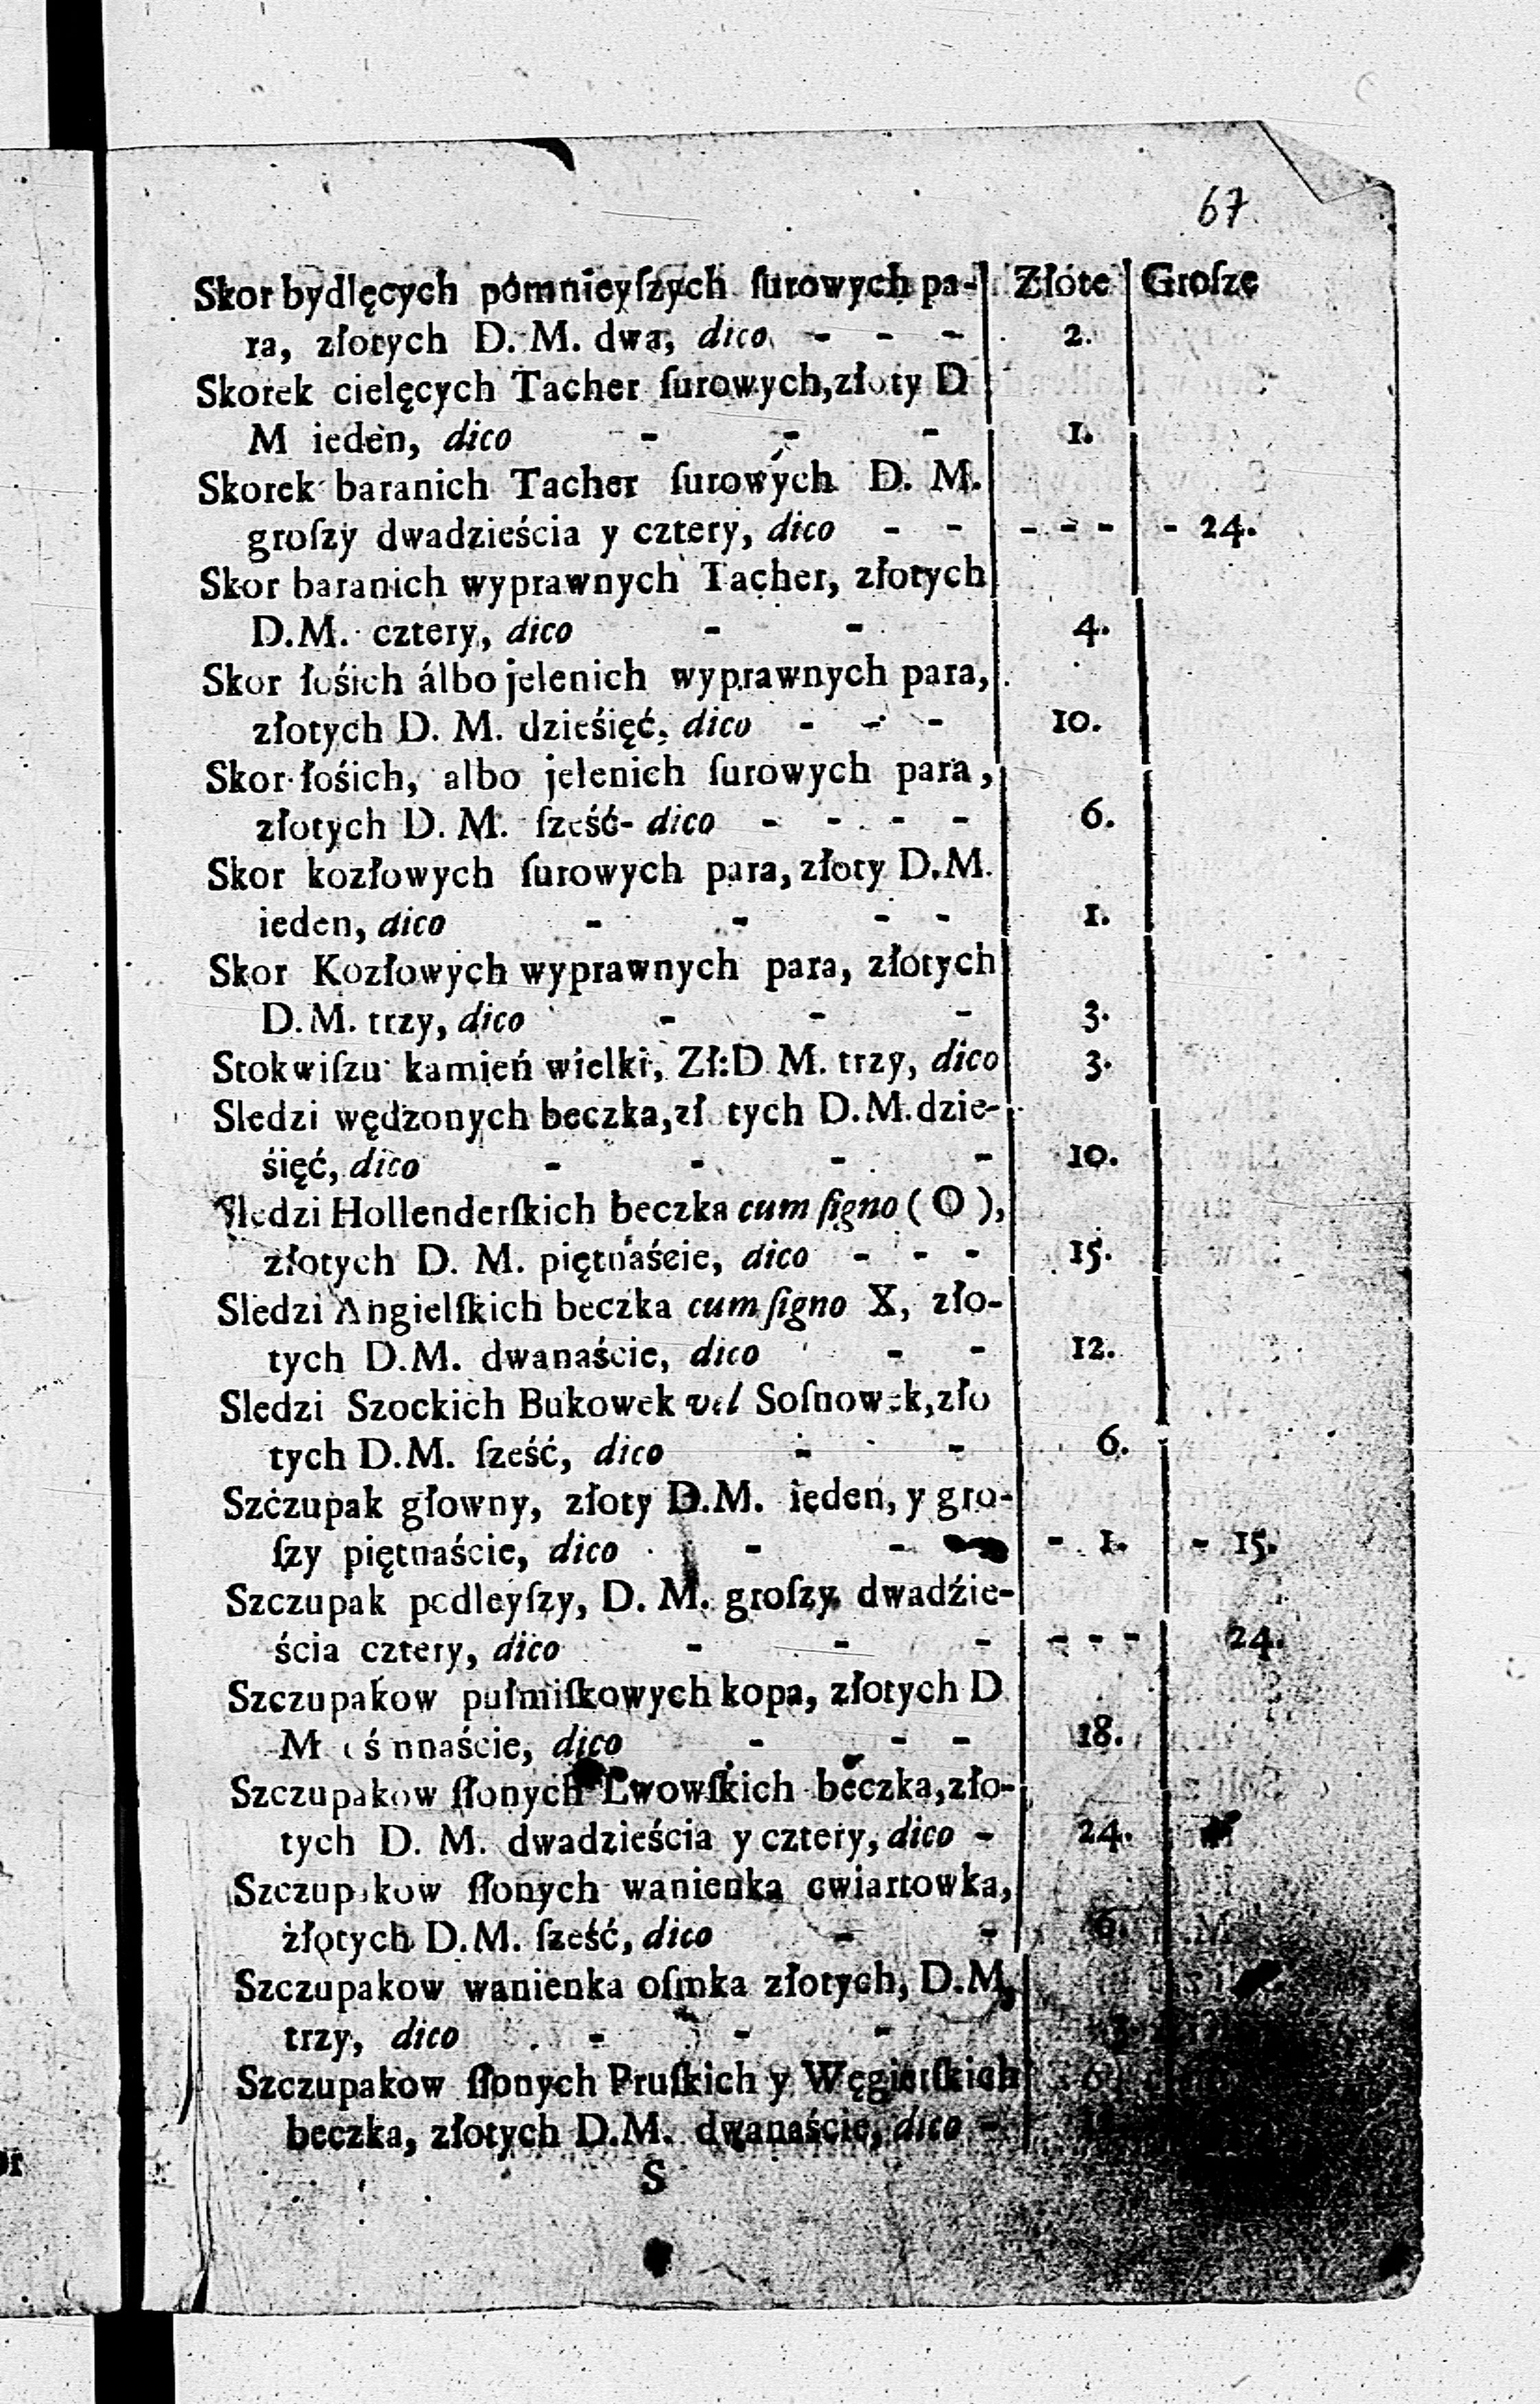 67.
Skor bydlęcych pomnieyſzych ſurowych pa- Złote Groſze
ra, złotych D. M. dwa, dico - - - 2.
Skorek cielęcych Tacher ſurowych, złoty D
M ieden, dico - - - 1.
Skorek baranich Tacher ſurowych D. M.
groſzy dwadzieścia y cztery, dico - - - - - - 24.
Skor baranich wyprawnych Tacher, złotych
D.M. cztery, dico - - 4.
Skor łośich álbo jelenich wyprawnych para,
złotych D. M. dzieśięć, dico - - - 10.
Skor łośich, albo jelenich ſurowych para,
złotych D. M. ſześć- dico - - - - 6.
Skor kozłowych ſurowych para, złoty D.M.
ieden, dico - - - - 1.
Skor Kozłowych wyprawnych para, złotych
D.M. trzy, dico - - - 3.
Stokwiſzu kamień wielki, Zł:D M. trzy, dico 3.
Sledzi wędzonych beczka, zł tych D.M. dzie-
śięć, dico - - - - 10.
Sledzi Hollenderſkich beczka cum ſigno ( O ),
złotych D. M. piętnaście, dico - - - 15.
Sledzi Angielſkich beczka cum ſigno X, zło-
tych D.M. dwanaście, dico - - 12.
Sledzi Szockich Bukowek vel Soſnowek, zło
tych D.M. ſześć, dico - - 6.
Szczupak głowny, złoty D.M. ieden, y gro-
ſzy piętnaście, dico - - - 1. - 15.
Szczupak podleyſzy, D. M. groſzy dwadźie-
ścia cztery, dico - - - - - - 24.
Szczupakow pułmiſkowych kopa, złotych D
M ośmnaście, dico - - - 18.
Szczupakow ſłonych Lwowſkich beczka, zło-
tych D. M. dwadzieścia y cztery, dico - 24.
Szczupakow ſłonych wanienka cwiartowka,
złotych D.M. ſześć, dico - - 6.
Szczupakow wanienka oſmka złotych, D.M,
trzy, dico - - - 3.
Szczupakow ſłonych Pruſkich y Węgierſkich
beczka, złotych D.M. dwanaście, dico -
S